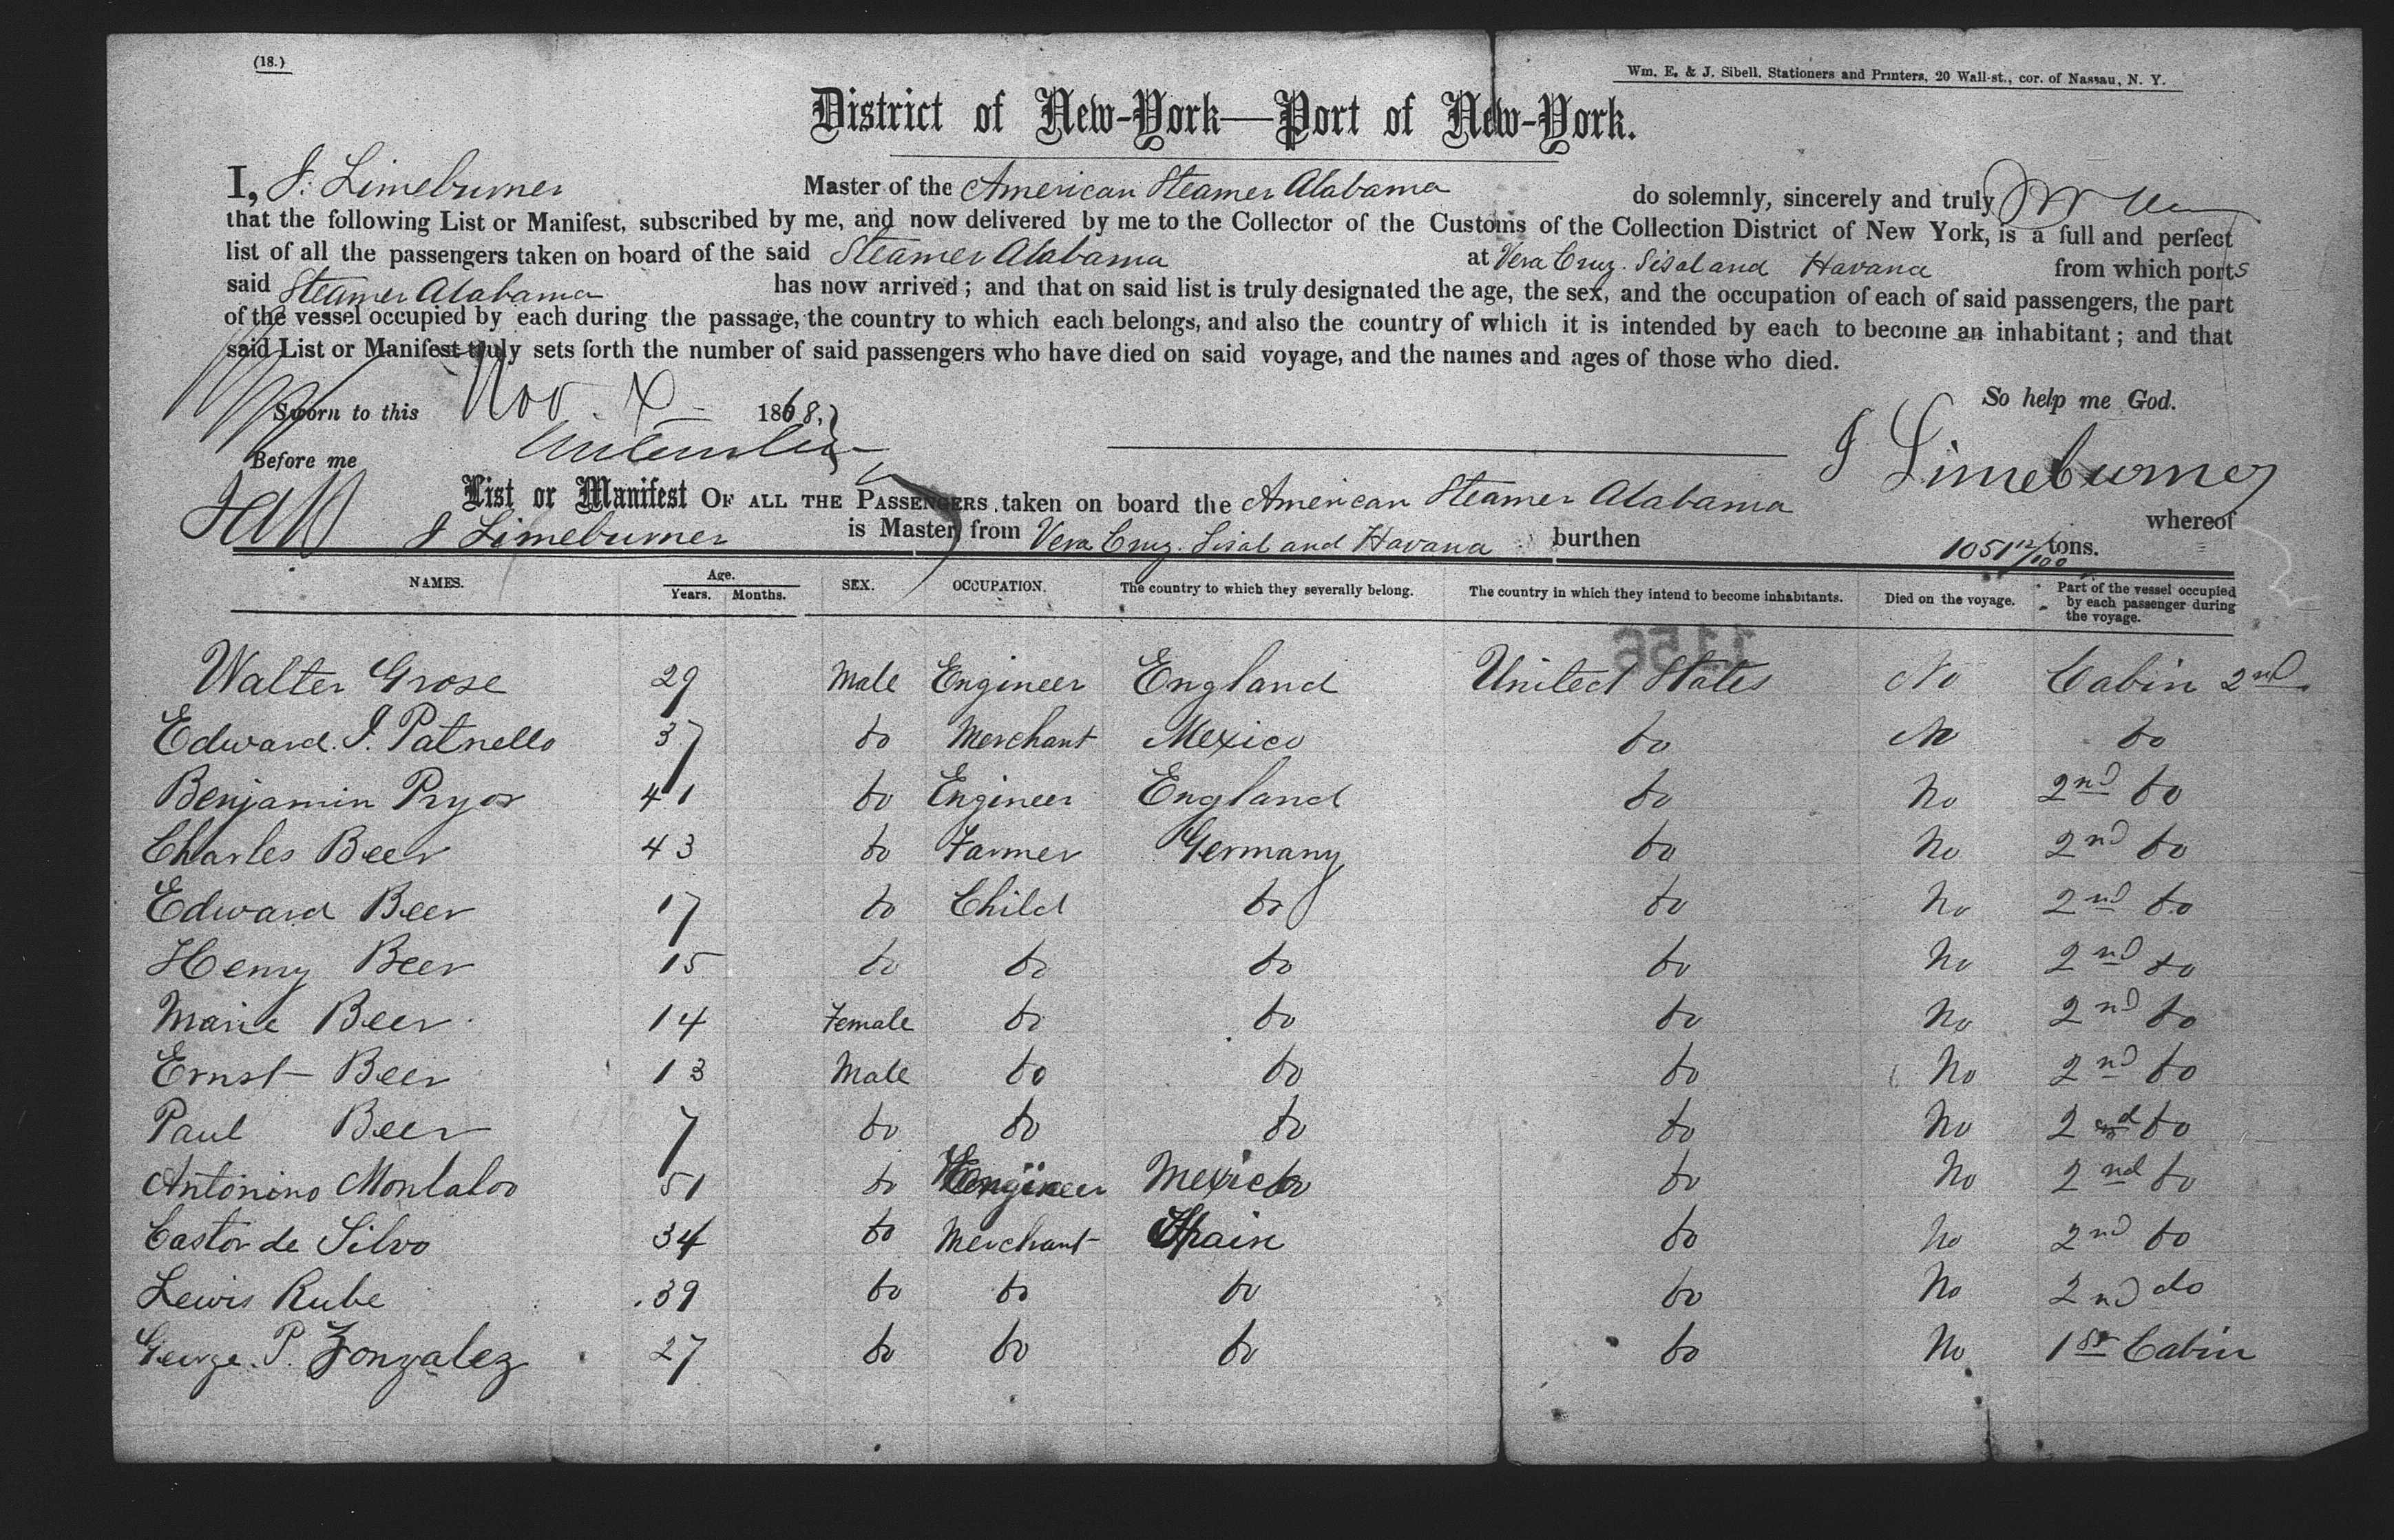 (18.)
Wm. E. & J. Sibell, Stationers and Printers, 20 Wall-st., cor. of Nassau, N. Y.
District of New-York—Port of New-York.
I, J. Limeburner Master of the American Steamer Alabama do solemnly, sincerely and truly
that the following List or Manifest, subscribed by me, and now delivered by me to the Collector of the Customs of the Collection District of New York, is a full and perfect
list of all the passengers taken on board of the said Steamer Alabama at Vera Cruz. Sisal and Havana from which ports
said Steamer Alabama has now arrived; and that on said list is truly designated the age, the sex, and the occupation of each of said passengers, the part
of the vessel occupied by each during the passage, the country to which each belongs, and also the country of which it is intended by each to become an inhabitant; and that
said List or Manifest truly sets forth the number of said passengers who have died on said voyage, and the names and ages of those who died.
So help me God.
Sworn to this Nov. 1868,
J Limeburner
Before me
List or Manifest OF ALL THE PASSENGERS taken on board the American Steamer Alabama whereof
J Limeburner is Master, from Vera Cruz. Sisal and Havana burthen 1051 12/100 tons.
NAMES. Age. Years. Months. SEX. OCCUPATION. The country to which they severally belong. The country in which they intend to become inhabitants. Died on the voyage. Part of the vessel occupied by each passenger during the voyage.
1156
Walter Grose 29 Male Engineer England United States No Cabin 2nd
Edward. J. Patnello 37 do Merchant Mexico do No do
Benjamin Pryor 41 do Engineer England do No 2nd do
Charles Beer 43 do Farmer Germany do No 2nd do
Edward Beer 17 do Child do do No 2nd do
Henry Beer 15 do do do do No 2nd do
Marie Beer 14 Female do do do No 2nd do
Ernst Beer 13 Male do do do No 2nd do
Paul Beer 7 do do do do No 2nd do
Antonino Montalvo 51 do Engineer Mexico do No 2nd do
Castor de Silvo 34 do Merchant Spain do No 2nd do
Lewis Rube 39 do do do do No 2nd do
George. P. Gonzalez 27 do do do do No 1st Cabin